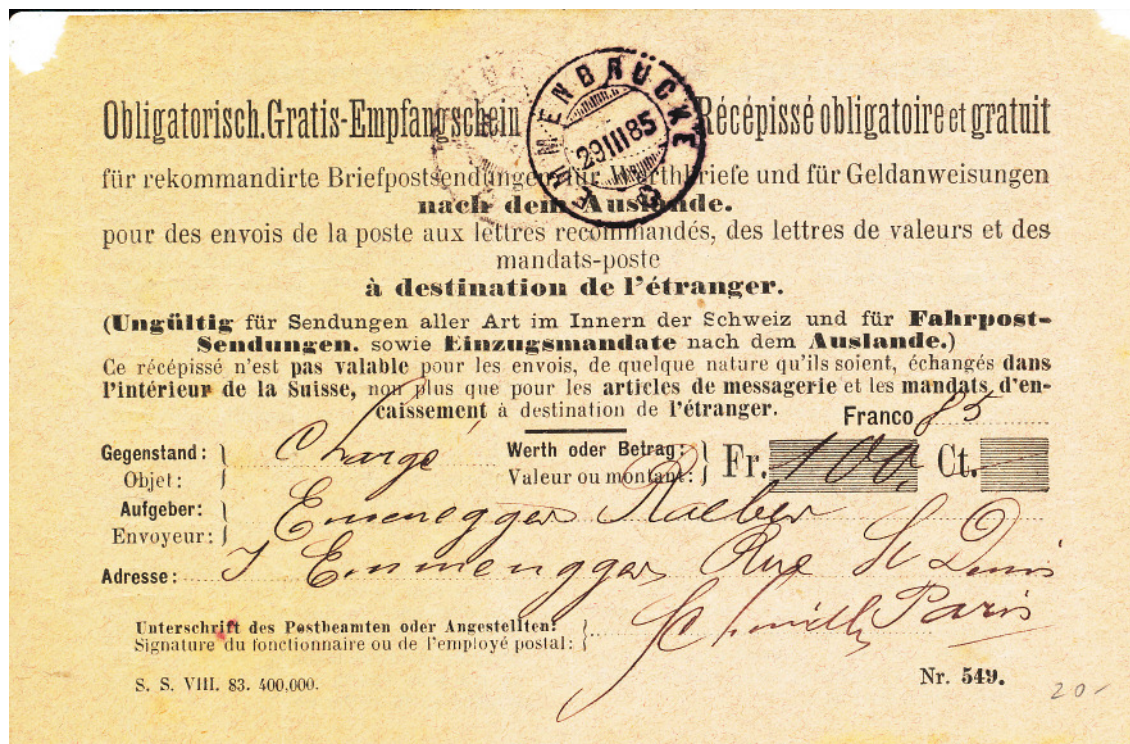 Obligatorisch. Gratis-Empfangschein Récépissé obligatoire et gratuit
EMMENBRÜCKE
29 III 85
für rekommandirte Briefpostsendungen für Werthbriefe und für Geldanweisungen
nach dem Auslande.
pour des envois de la poste aux lettres recommandés, des lettres de valeurs et des
mandats-poste
à destination de l'étranger.
(Ungültig für Sendungen aller Art im Innern der Schweiz und für Fahrpost-
Sendungen, sowie Einzugsmandate nach dem Auslande.)
Ce récépissé n'est pas valable pour les envois, de quelque nature qu'ils soient, échangés dans
l'intérieur de la Suisse, non plus que pour les articles de messagerie et les mandats d'en-
caissement à destination de l'étranger.
Franco 85
Gegenstand: Chargé Werth oder Betrag: Fr. 100. Ct. –
Objet: Valeur ou montant:
Aufgeber: Emenegger Raeber
Envoyeur:
Adresse: J Emmengger Rue St Denis
Paris
Unterschrift des Postbeamten oder Angestellten:
Signature du fonctionnaire ou de l'employé postal:
S. S. VIII. 83. 400,000.
Nr. 549.
20.-